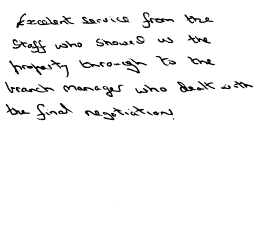 Excellent service from the
staff who showed us the
property through to the
branch manager who dealt with
the final negotiation.